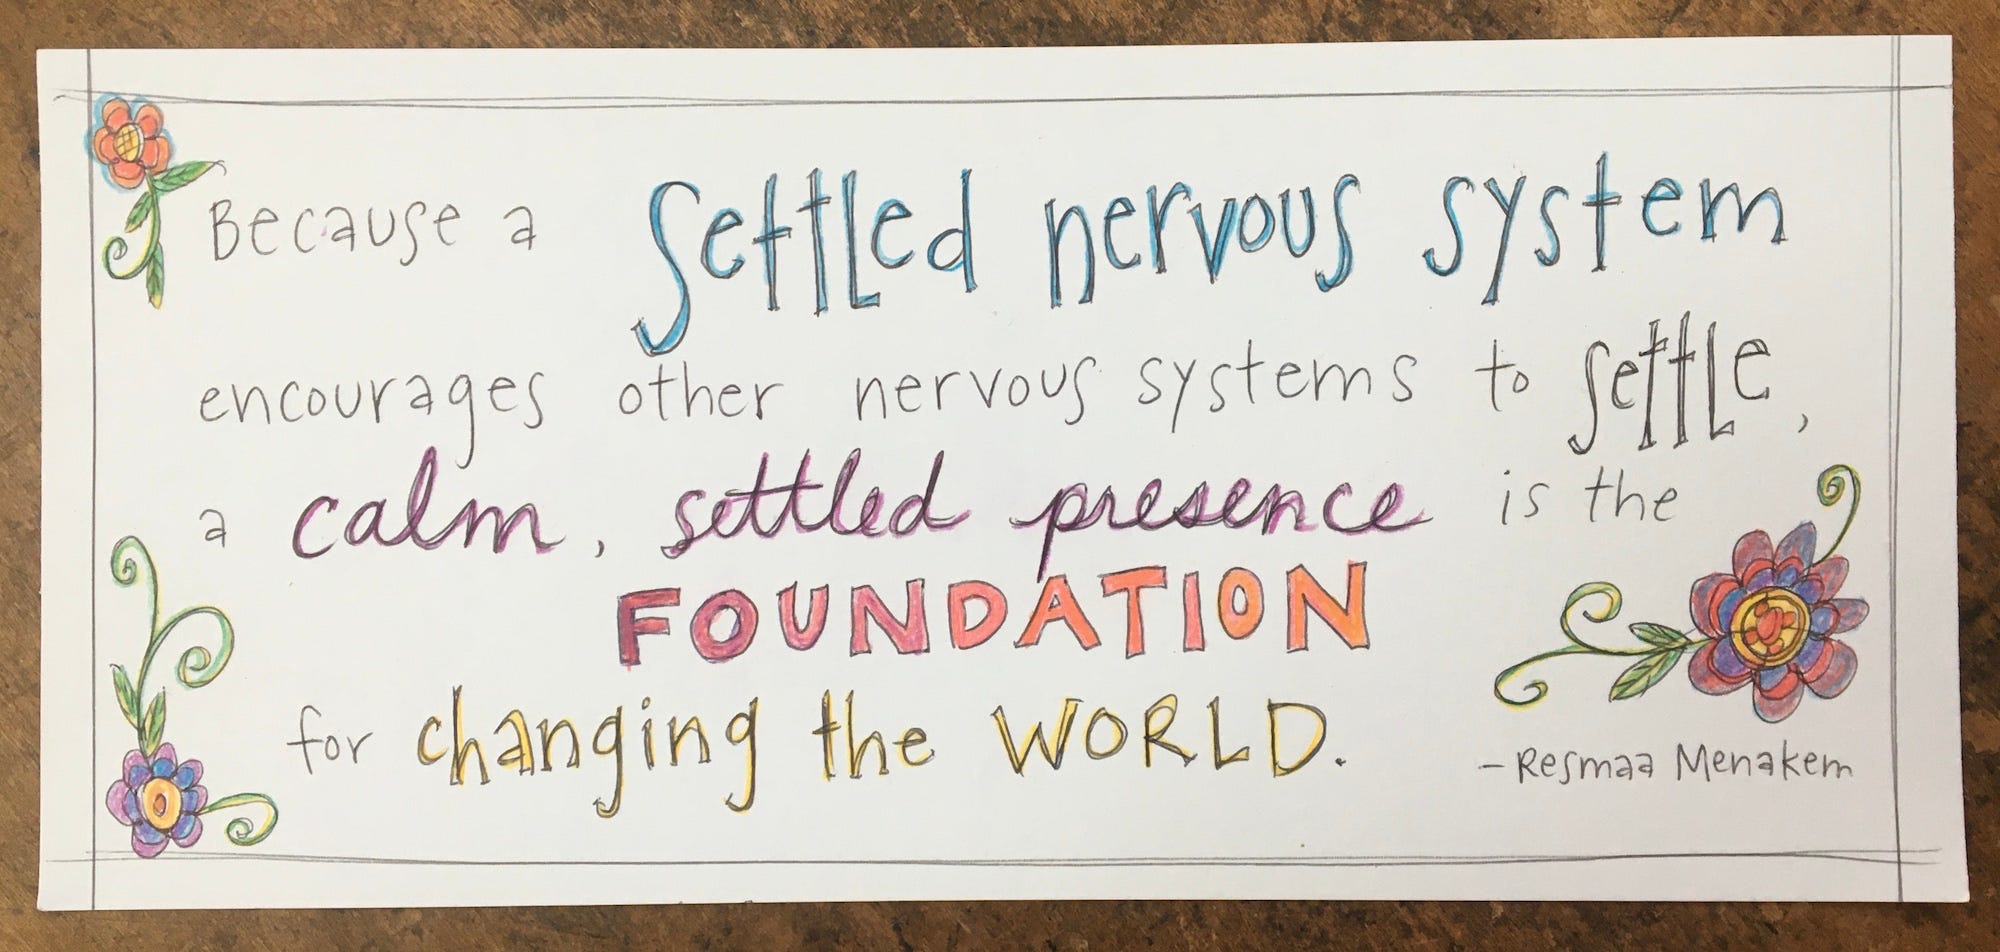 Because a settled nervous system
encourages other nervous systems to settle,
a calm, settled presence is the
FOUNDATION
for changing the WORLD.
– Resmaa Menakem